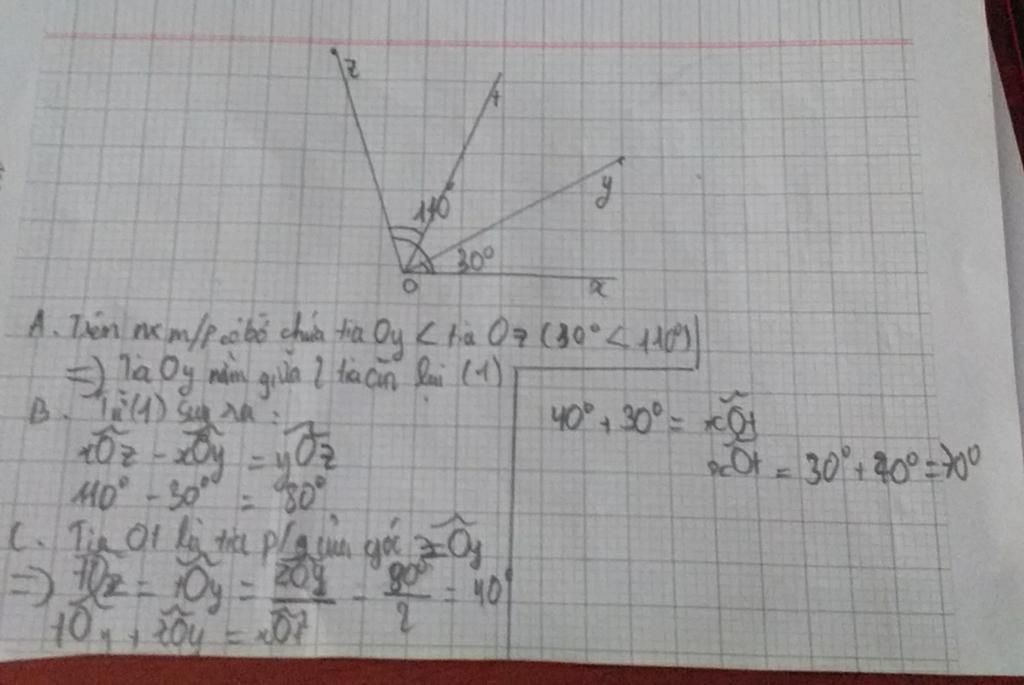 z
t
y
110°
30°
O
x
A. Trên nc m/p có bờ chứa tia Oy < tia Oz (30° < 110°)
=> Tia Oy nằm giữa 2 tia còn lại (1)
B. Từ (1) suy ra:
xOz - xOy = yOz
110° - 30° = 80°
C. Tia Ot là tia p/g của góc zOy
=> tOz = tOy = zOy/2 = 80°/2 = 40°
tOy + xOy = xOt
40° + 30° = xOt
xOt = 30° + 40° = 70°